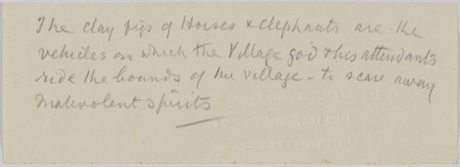 The clay figs of Horses & elephants are the
vehicles on which the Village god & his attendants
ride the bounds of the village - to scare away
malevolent spirits